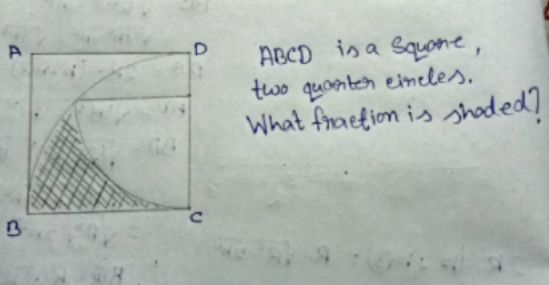 A
D
ABCD is a Square,
two quarter circles.
What fraction is shaded?
B
C